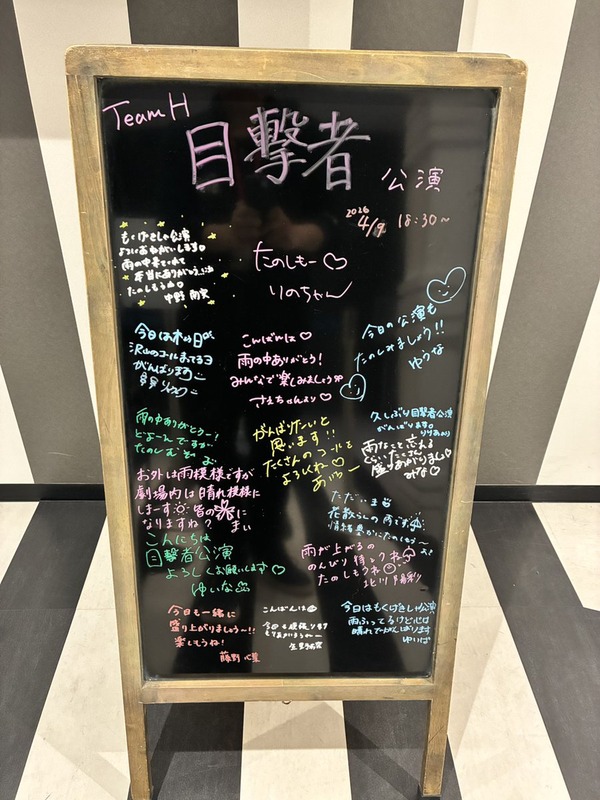 Team H
目撃者
公演
2026 4/9 18:30〜
もくげきしゃ公演
よろしくおねがいします。
雨の中来てくれて
本当にありがとう
たのしもうね
たのしもー♡
りのちゃん
今日の公演も
たのしみましょう!!
ゆうな
今日は木の日
沢山のコールまってるヨ
がんばります
こんばんは♡
雨の中ありがとう!
みんなで楽しみましょう
さえちゃんより♡
久しぶり目撃者公演
がんばります。
雨なこと忘れる
ぐらいたくさん
盛りあがりましょ
みな♡
がんばりたいと
思います!!
たくさんのコールを
よろしくね♡
あいろー
雨の中ありがとうー!
たのしむぞ
お外は雨模様ですが
劇場内は晴れ模様に
しまーす 皆の
になりますね?
まい
ただいま
花散らしの雨です
こんにちは
目撃者公演
よろしくお願いします♡
ゆいな
雨が上がるの
のんびり待とうネ
たのしもうネ
北川陽彩
今日も一緒に
盛り上がりましょう〜!!
楽しもうね!
藤野心葉
こんばんは
今日も頑張ります
もりあがろうねー
今日はもくげきしゃ公演
雨ふってるけど心は
晴れでがんばります
ゆいは